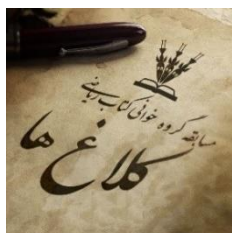 مسابقه گروه خوانی کتاب ریاضی
کلاغ ها